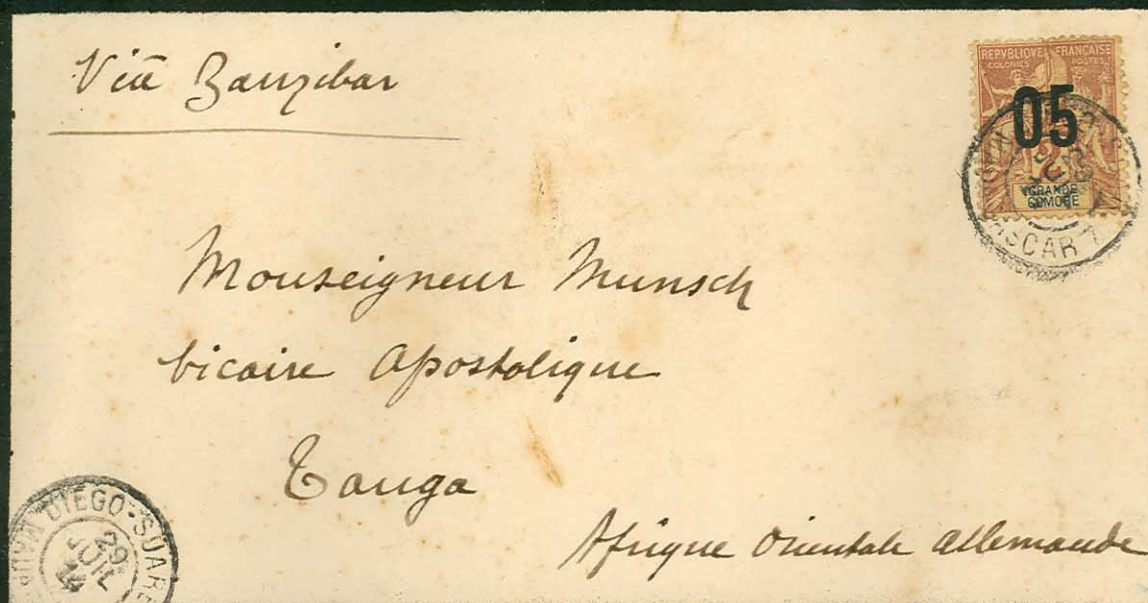 Viā Zanzibar
REPVBLIQVE FRANÇAISE
COLONIES POSTES
05
GRANDE
COMORE
Monseigneur Munsch
Vicaire Apostolique
Tanga
Afrique Orientale Allemande
DIEGO-SUARE
29
JUIL
14